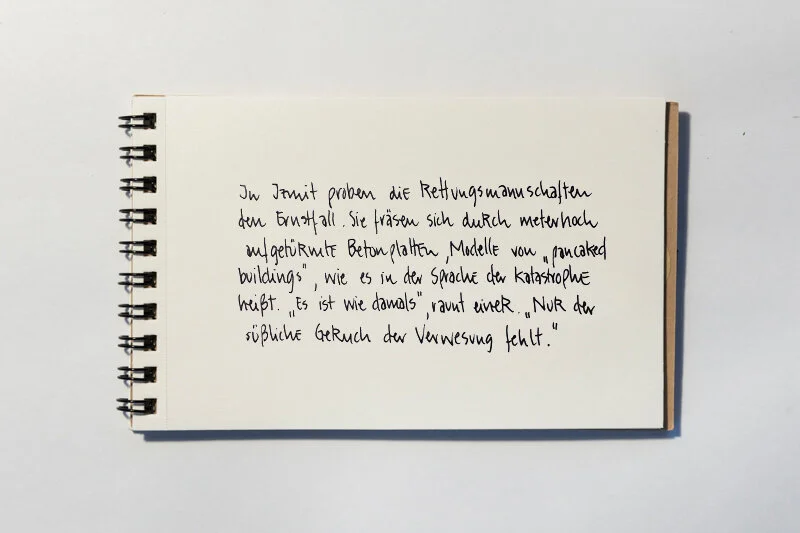 In Izmit proben die Rettungsmannschaften
den Ernstfall. Sie fräsen sich durch meterhoch
aufgetürmte Betonplatten, Modelle von „pancaked
buildings“, wie es in der Sprache der Katastrophe
heißt. „Es ist wie damals“, raunt einer. „Nur der
süßliche Geruch der Verwesung fehlt.“